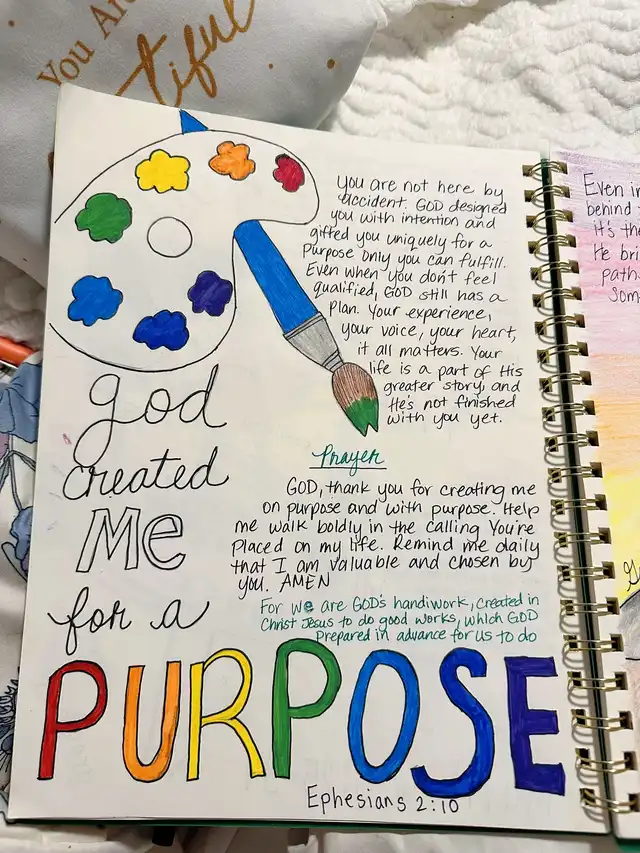 You Are
tiful
You are not here by
accident. GOD designed
you with intention and
gifted you uniquely for a
Purpose only you can fulfill.
Even when you don't feel
qualified, GOD still has a
Plan. Your experience,
your voice, your heart,
it all matters. Your
life is a part of His
greater story, and
He's not finished
with you yet.
god
created
Me
for a
PURPOSE
Prayer
GOD, thank you for creating me
on purpose and with purpose. Help
me walk boldly in the calling You're
Placed on my life. Remind me daily
that I am valuable and chosen by
you. AMEN
For we are GOD's handiwork, created in
Christ Jesus to do good works, which GOD
Prepared in advance for us to do
Ephesians 2:10
Even in
behind
it's the
He bri
path.
Som